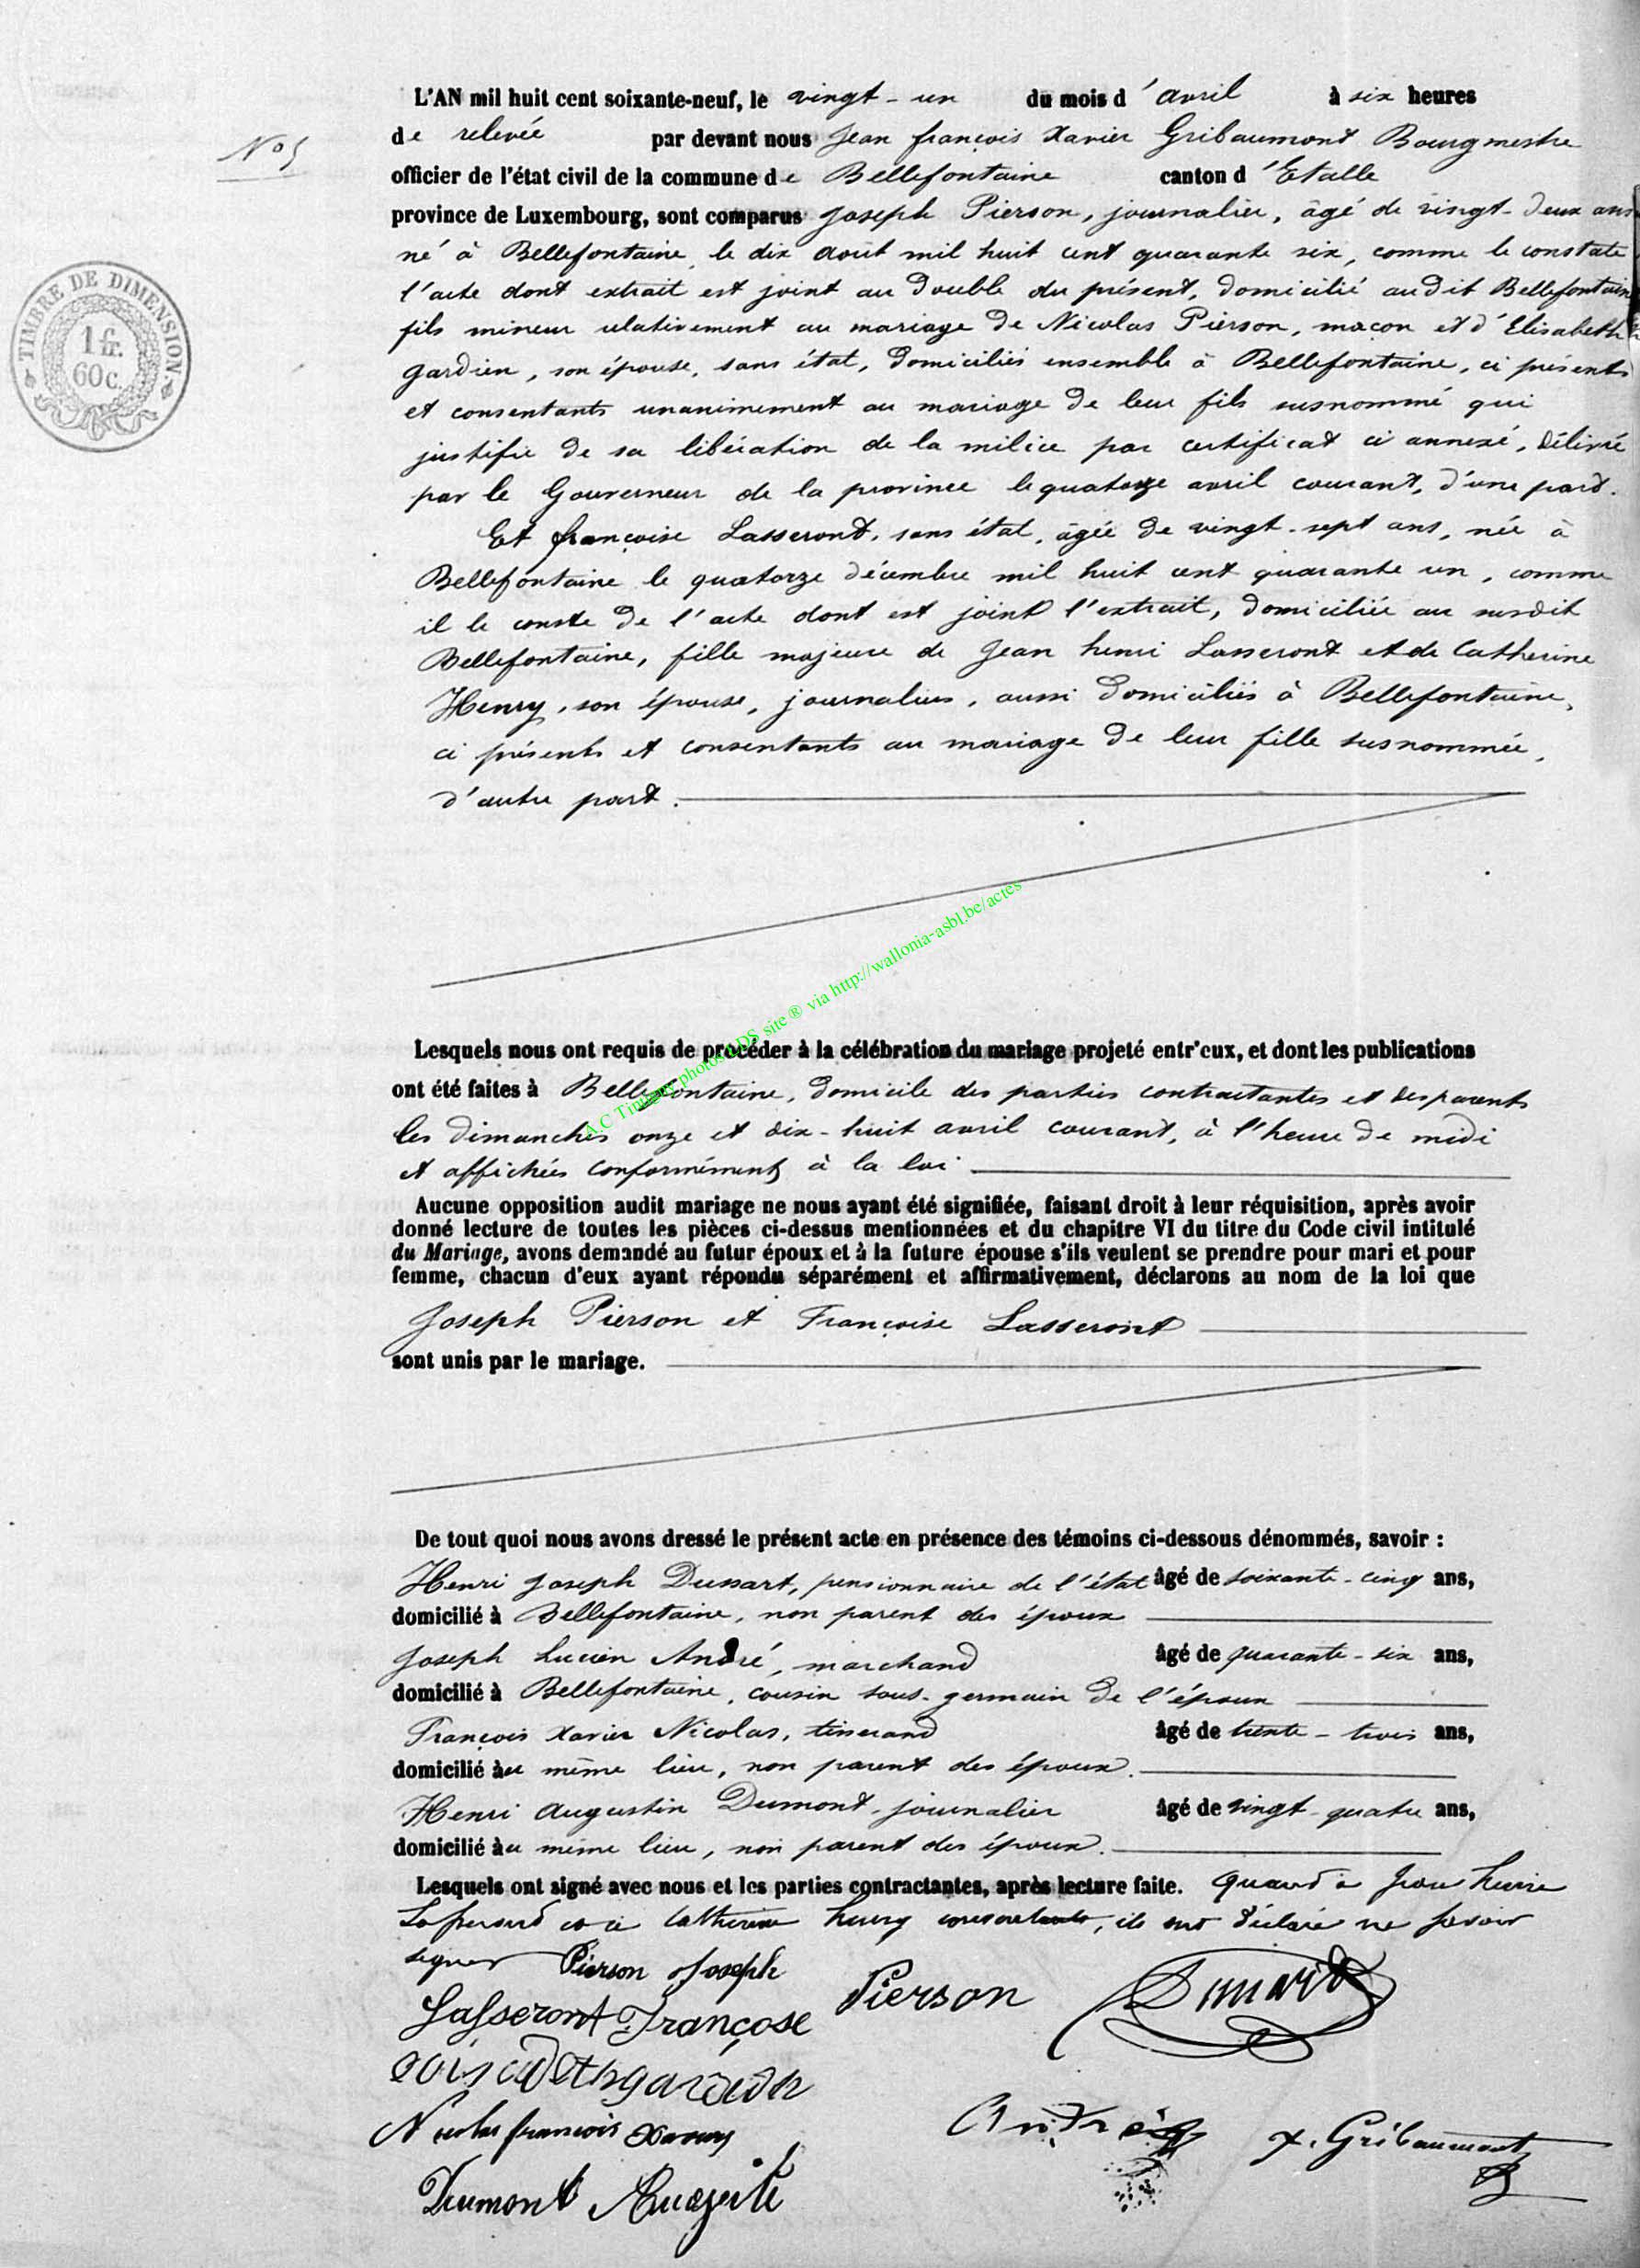 L'AN mil huit cent soixante-neuf, le vingt-un du mois d'avril à six heures
N° 5
de relevée par devant nous Jean françois Xavier Gribaumont Bourgmestre
officier de l'état civil de la commune de Bellefontaine canton d'Etalle
province de Luxembourg, sont comparus Joseph Pierson, journalier, âgé de vingt-deux ans
né à Bellefontaine, le dix août mil huit cent quarante six, comme le constate
l'acte dont extrait est joint au double du présent, domicilié audit Bellefontaine
fils mineur relativement au mariage de Nicolas Pierson, maçon et d'Elisabeth
gardien, son épouse, sans état, domiciliés ensemble à Bellefontaine, ci présents
et consentants unanimement au mariage de leur fils susnommé qui
justifie de sa libération de la milice par certificat ci annexé, délivré
par le Gouverneur de la province le quatorze avril courant, d'une part.
Et françoise Lasseront, sans état, âgée de vingt-sept ans, née à
Bellefontaine le quatorze décembre mil huit cent quarante un, comme
il le conste de l'acte dont est joint l'extrait, domiciliée au susdit
Bellefontaine, fille majeure de Jean henri Lasseront et de Catherine
Henry, son épouse, journaliers, aussi domiciliés à Bellefontaine,
ci présents et consentants au mariage de leur fille susnommée,
d'autre part.
TIMBRE DE DIMENSION
1 fr.
60 c.
A.C Tintigny photos LDS site ® via http://wallonia-asbl.be/actes
Lesquels nous ont requis de procéder à la célébration du mariage projeté entr'eux, et dont les publications
ont été faites à Bellefontaine, domicile des parties contractantes et des parents
les dimanches onze et dix-huit avril courant, à l'heure de midi
et affichées conformément à la loi
Aucune opposition audit mariage ne nous ayant été signifiée, faisant droit à leur réquisition, après avoir
donné lecture de toutes les pièces ci-dessus mentionnées et du chapitre VI du titre du Code civil intitulé
du Mariage, avons demandé au futur époux et à la future épouse s'ils veulent se prendre pour mari et pour
femme, chacun d'eux ayant répondu séparément et affirmativement, déclarons au nom de la loi que
Joseph Pierson et Françoise Lasseront
sont unis par le mariage.
De tout quoi nous avons dressé le présent acte en présence des témoins ci-dessous dénommés, savoir :
Henri Joseph Dussart, pensionnaire de l'état âgé de soixante-cinq ans,
domicilié à Bellefontaine, non parent des époux
Joseph Lucien André, marchand âgé de quarante-six ans,
domicilié à Bellefontaine, cousin sous-germain de l'époux
François Xavier Nicolas, tisserand âgé de trente-trois ans,
domicilié au même lieu, non parent des époux.
Henri Augustin Dumont, journalier âgé de vingt-quatre ans,
domicilié au même lieu, non parent des époux.
Lesquels ont signé avec nous et les parties contractantes, après lecture faite. Quand à Jean henri
Lasserond et à Catherine henry consentants, ils ont déclaré ne savoir
signer Pierson Joseph
Pierson
Lasseront Françose
Nicolas françois
André
X. Gribaumont
Dumont